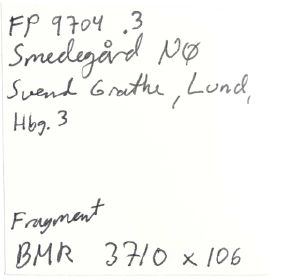 FP 9704 .3
Smedegård NØ
Svend Grathe, Lund,
Hbg. 3
Fragment
BMR 3710 x 106